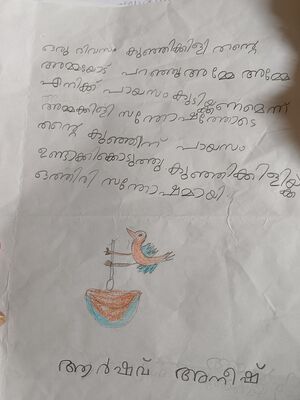 ഒരു ദിവസം കുഞ്ഞിക്കിളി തന്റെ
അമ്മയോട് പറഞ്ഞു അമ്മേ അമ്മേ
എനിക്ക് പായസം കുടിയ്ക്കണമെന്ന്
അമ്മക്കിളി സന്തോഷത്തോടെ
തന്റെ കുഞ്ഞിന് പായസം
ഉണ്ടാക്കികൊടുത്തു കുഞ്ഞിക്കിളിയ്ക്ക്
ഒത്തിരി സന്തോഷമായി
ആർഷവ് അനീഷ്